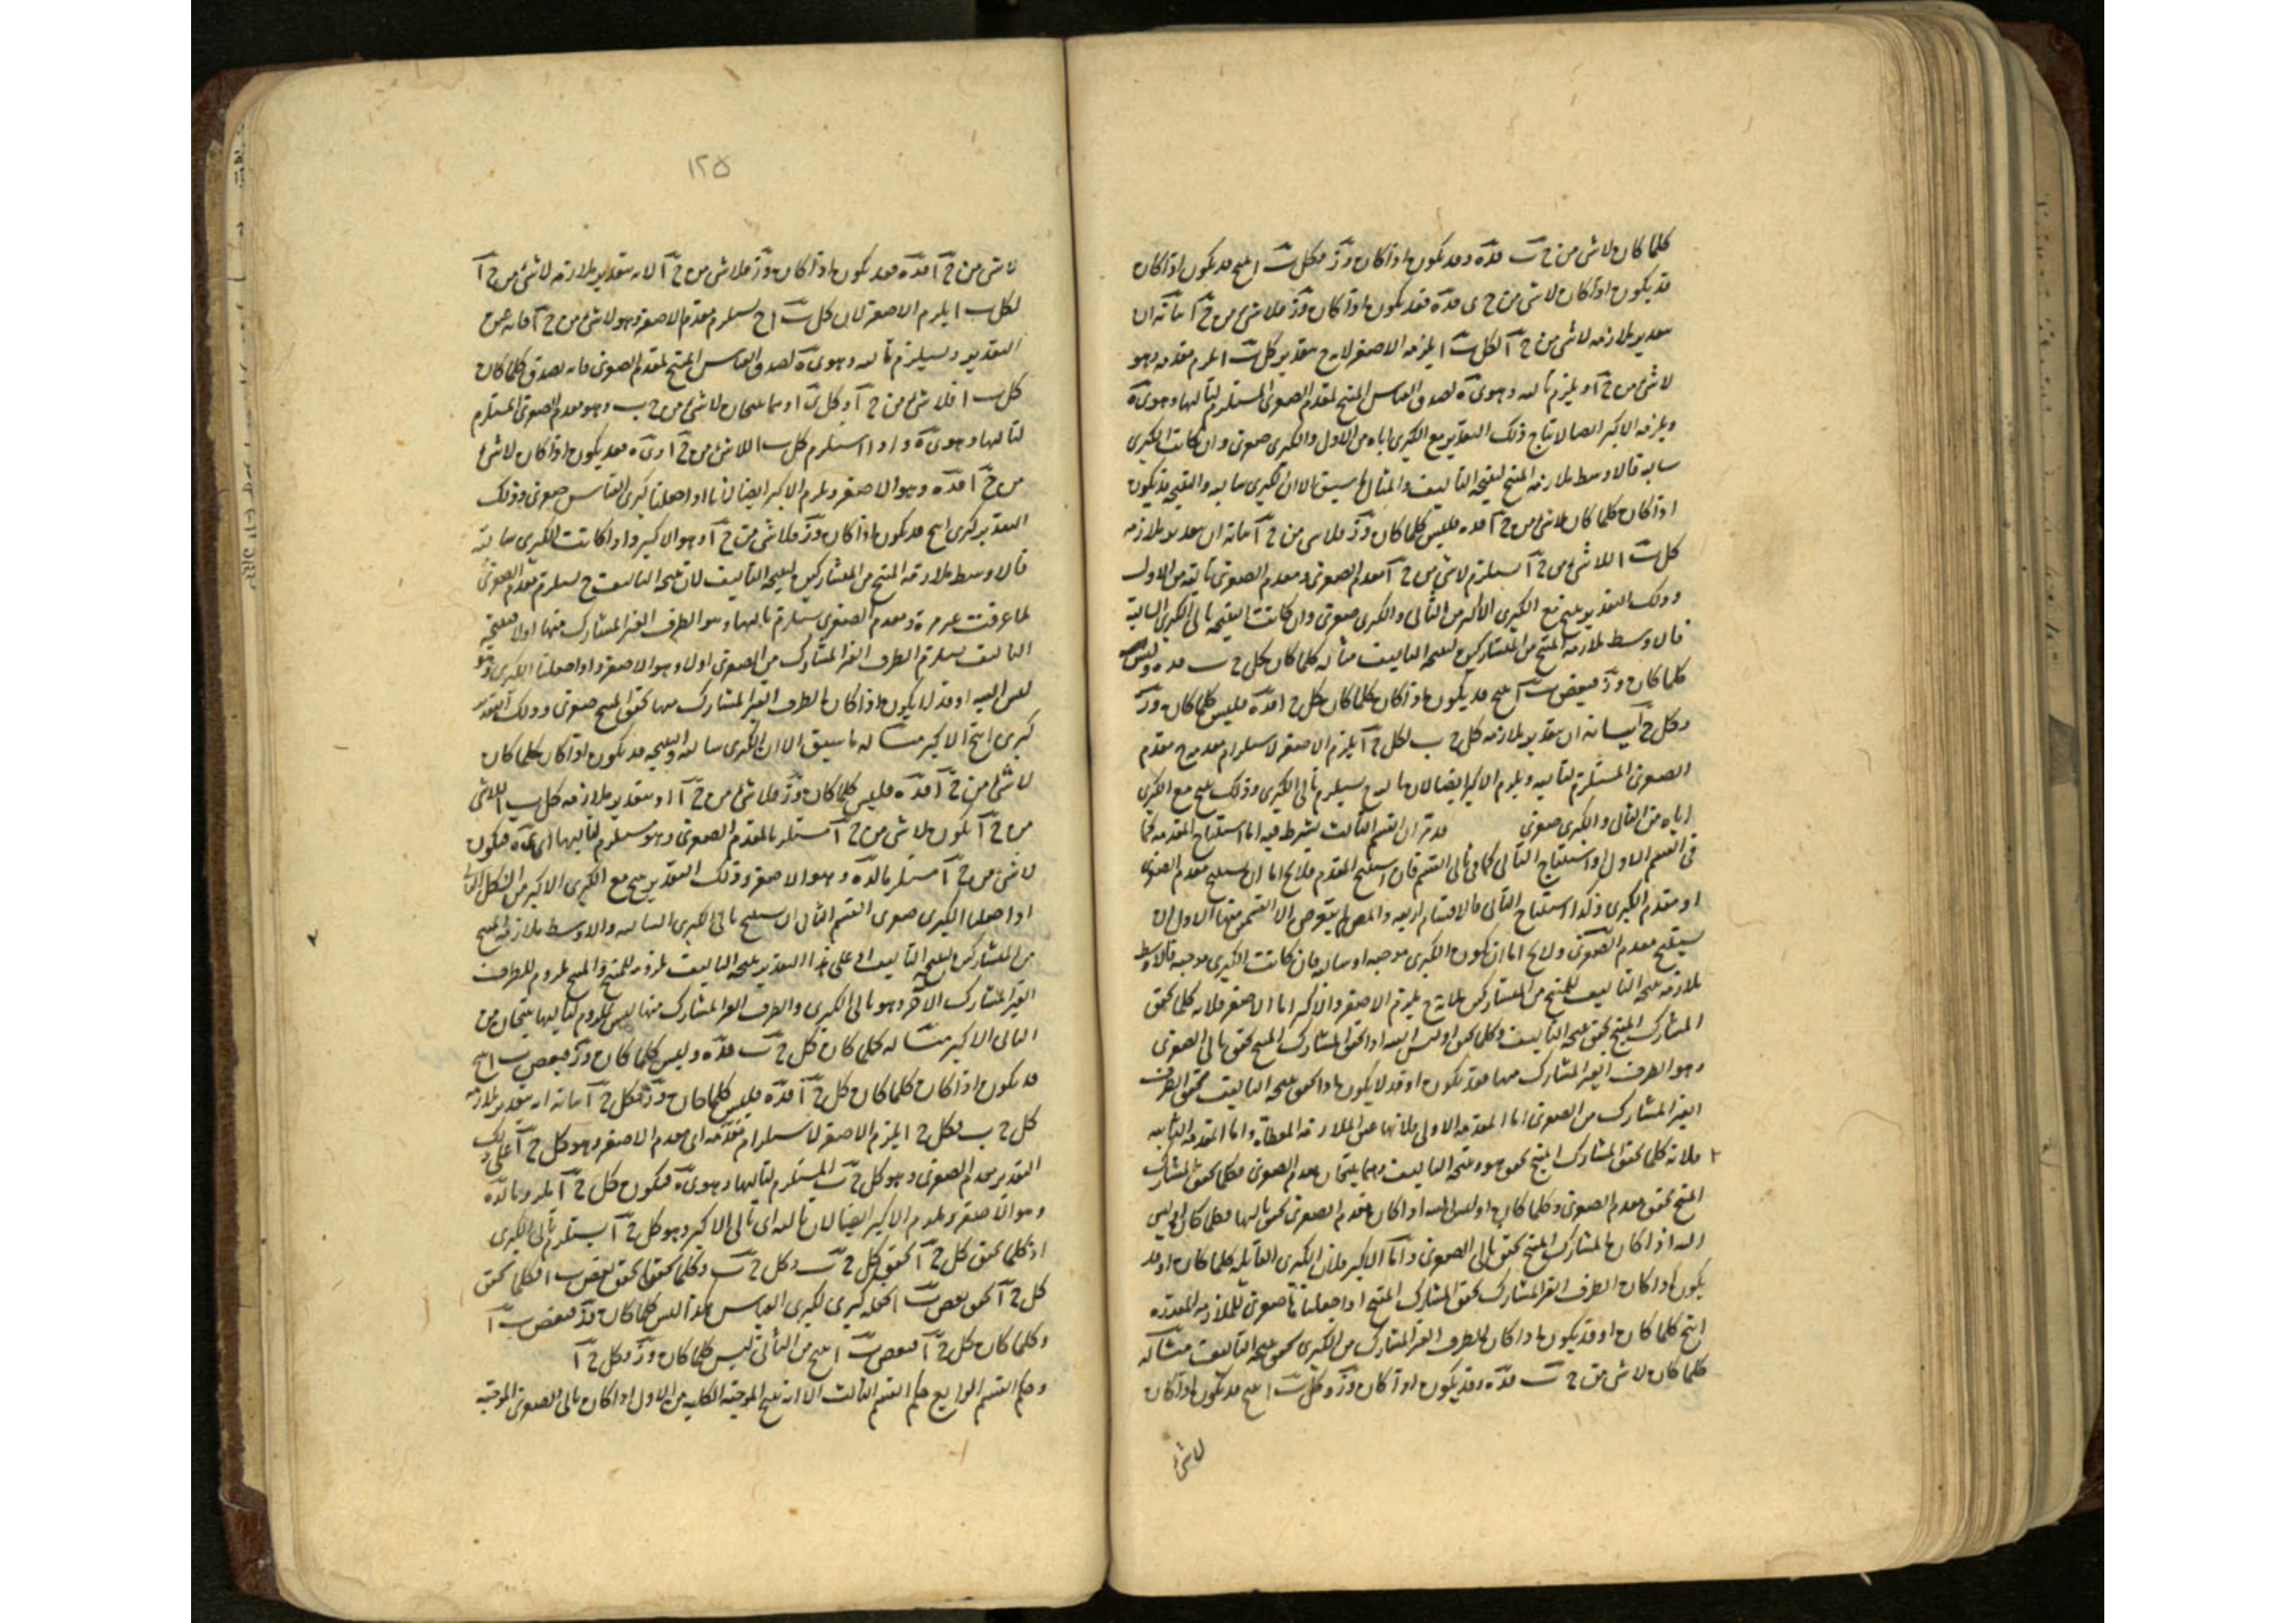 كلما كان لاشئ من ج ب فده وقد يكون اذا كان وز فكل ب ا ينتج قد يكون اذا كان
قد يكون اذا كان لاشئ من ج فده فقد يكون اذا كان وز فلاشئ من ج ا بيانه ان
بتقدير ملازمه لاشئ من ج ا لكل ب ا يلزمه الاصغر لان ح بتقدير كل ب ا يلزم مقدمه وهو
لاشئ من ج ا ويلزم تاليه وهو ده لصدق القياس المنتج لمقدم الصغرى المستلزم لتاليها وهو ده
ويلزمه الاكبر ايضا لانتاج ذلك التقدير مع الكبرى اياه من الاول والكبرى صغرى وان كانت الكبرى
سالبه فالاوسط ملازمه المنتج لنتيجه التاليف والمثال ما سبق الا ان الكبرى سالبه والنتيجه قد يكون
اذا كان كلما كان لاشئ من ج ا فده فليس كلما كان وز فلاشئ من ج ا بيانه ان بتقدير ملازمه
كل ب ا للاشئ من ج ا يستلزم لاشئ من ج ا مقدم الصغرى ومقدم الصغرى تاليه من الاول
وذلك التقدير ينتج مع الكبرى الاكبر من الثانى والكبرى صغرى وان كانت النتيجه تالى الكبرى السالبة
فالاوسط ملازمه المنتج من المتشاركين لنتيجه التاليف مثاله كلما كان كل ج ب فده وليس
كلما كان وز فبعض ب ا ينتج قد يكون اذا كان كلما كان كل ج ا فده فليس كلما كان وز
فكل ج ا بيانه ان بتقدير ملازمه كل ج ب لكل ج ا يلزم الاصغر لاستلزام مقدمه ح مقدم
الصغرى المستلزم لتاليه ويلزم الاكبر ايضا لان تاليه ح يستلزم تالى الكبرى وذلك ينتج مع الكبرى
اياه من الثانى والكبرى صغرى قد مر ان القسم الثالث يشترط فيه اما استنتاج المقدم كما
فى القسم الاول او استنتاج التالى كما فى ثانى القسم فان استنتج المقدم فلا يخ اما ان يستنتج مقدم الصغرى
او مقدم الكبرى وكذا استنتاج التالى فالاقسام اربعه والمص لم يتعرض الا لقسمين منها الاول ان
يستنتج مقدم الصغرى ولا يخ اما ان يكون الكبرى موجبه او سالبه فان كانت الكبرى موجبه فالاوسط
ملازمه نتيجه التاليف للمنتج من المتشاركين فانه ح يلزم الاصغر والاكبر اما الاصغر فلانه كلما تحقق
المشارك المنتج تحقق نتيجه التاليف وكلما تحقق او ليس البته اذا تحقق المشارك المنتج تحقق تالى الصغرى
وهو الطرف الغير المشارك منها فقد يكون او قد لا يكون اذا تحقق نتيجه التاليف تحقق الطرف
الغير المشارك من الصغرى اما المقدمه الاولى فلانها عين الملازمه المعطاة واما المقدمه الثانيه
فلانه كلما تحقق المشارك المنتج تحقق هو ونتيجه التاليف وهما ينتجان مقدم الصغرى فكلما تحقق المشارك
المنتج تحقق مقدم الصغرى وكلما كان او ليس البته اذا كان مقدم الصغرى تحقق تاليها فكلما كان او ليس
البته اذا كان المشارك المنتج تحقق تالى الصغرى واما الاكبر فلان الكبرى القائله كلما كان او قد
يكون اذا كان الطرف الغير المشارك تحقق المشارك المنتج اذا جعلناها صغرى للملازمه المقدره
انتج كلما كان او قد يكون اذا كان الطرف الغير المشارك من الكبرى تحقق نتيجه التاليف مثاله
كلما كان لاشئ من ج ب فده وقد يكون اذا كان وز وكل ب ا ينتج قد يكون اذا كان
لاشئ
١٢٥
لاشئ من ج ا فده فقد يكون اذا كان وز فلاشئ من ج ا لانه بتقدير ملازمه لاشئ من ج ا
لكل ب ا يلزم الاصغر لان كل ب ا ح يستلزم مقدم الاصغر وهو لاشئ من ج ا فانه عين
التقدير ويستلزم تاليه وهو ده لصدق القياس المنتج لمقدم الصغرى فانه يصدق كلما كان
كل ب ا فلاشئ من ج ا وكل ب ا وهما ينتجان لاشئ من ج ب وهو مقدم الصغرى المستلزم
لتاليها وهو ده واذا استلزم كل ب ا للاشئ من ج ا و ده فقد يكون اذا كان لاشئ
من ج ا فده وهو الاصغر ويلزم الاكبر ايضا لانا اذا جعلنا كبرى القياس صغرى وذلك
التقدير كبرى انتج قد يكون اذا كان وز فلاشئ من ج ا وهو الاكبر واذا كانت الكبرى سالبة
فالاوسط ملازمه المنتج من المتشاركين لنتيجه التاليف لان نتيجه التاليف ح يستلزم مقدم الصغرى
لما عرفت غير مرة ومقدم الصغرى يستلزم تاليها وهو الطرف الغير المشارك منها او لا فنتيجه
التاليف يستلزم الطرف الغير المشارك من الصغرى او لا وهو الاصغر واذا جعلنا الكبرى وهو
ليس البته او قد لا يكون اذا كان الطرف الغير المشارك منها تحقق المنتج صغرى وذلك التقدير
كبرى انتج الاكبر مثاله ما سبق الا ان الكبرى سالبه والنتيجه قد يكون اذا كان كلما كان
لاشئ من ج ا فده فليس كلما كان وز فلاشئ من ج ا اذ بتقدير ملازمه كل ب ا للاشئ
من ج ا يكون لاشئ من ج ا مستلزما لمقدم الصغرى وهو مستلزم لتاليها اى ده فيكون
لاشئ من ج ا مستلزما لده وهو الاصغر وذلك التقدير ينتج مع الكبرى الاكبر من الشكل الثانى
اذا جعلنا الكبرى صغرى القسم الثانى ان يستنتج تالى الكبرى السالبه والاوسط ملازمه المنتج
من المتشاركين لنتيجه التاليف اذ على هذا التقدير نتيجه التاليف لازمه للمنتج والمنتج ملزوم للطرف
الغير المشارك الاخر وهو تالى الكبرى والطرف الغير المشارك منها ليس بملزوم لتاليها ينتجان من
الثانى الاكبر مثاله كلما كان كل ج ب فده وليس كلما كان وز فبعض ب ا ينتج
قد يكون اذا كان كلما كان كل ج ا فده فليس كلما كان وز فكل ج ا بيانه ان بتقدير ملازمه
كل ج ب لكل ج ا يلزم الاصغر لاستلزام مقدمه اى مقدم الاصغر وهو كل ج ا على ذلك
التقدير مقدم الصغرى وهو كل ج ب المستلزم لتاليها وهو ده فيكون كل ج ا ملزوما لده
وهو الاصغر ويلزم الاكبر ايضا لان تاليه اى تالى الاكبر وهو كل ج ا يستلزم تالى الكبرى
اذ كلما تحقق كل ج ا تحقق كل ج ب وكل ج ب وكلما تحققا تحقق بعض ب ا فكلما تحقق
كل ج ا تحقق بعض ب ا نجعله كبرى لكبرى القياس هكذا ليس كلما كان وز فبعض ب ا
وكلما كان كل ج ا فبعض ب ا ينتج من الثانى ليس كلما كان وز فكل ج ا
وحكم القسم الرابع حكم القسم الثالث الا انه ينتج الموجبة الكليه من الاول اذا كان تالى الصغرى الموجبه